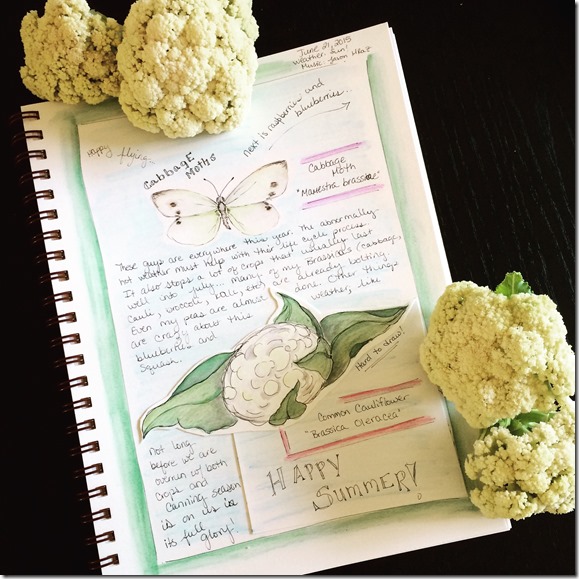 June 21, 2015
Weather: Sun!
Music: Jason Mraz
next is raspberries and
blueberries...
Happy flying...
Cabbage
Moths
Cabbage
Moth
"Mamestra brassicae"
These guys are everywhere this year. The abnormally
hot weather must help with their life cycle process.
It also stops a lot of crops that usually last
well into July... many of my Brassicas (cabbage,
cauli, broccoli, kale, etc) are already bolting.
Even my peas are almost done. Other things
are crazy about this weather, like
blueberries and
squash.
Hard to draw!
Common Cauliflower
"Brassica Oleracea"
Not long
before we are
overrun w/ both
crops and
canning season
is on us in
its full
glory!
HAPPY
SUMMER!